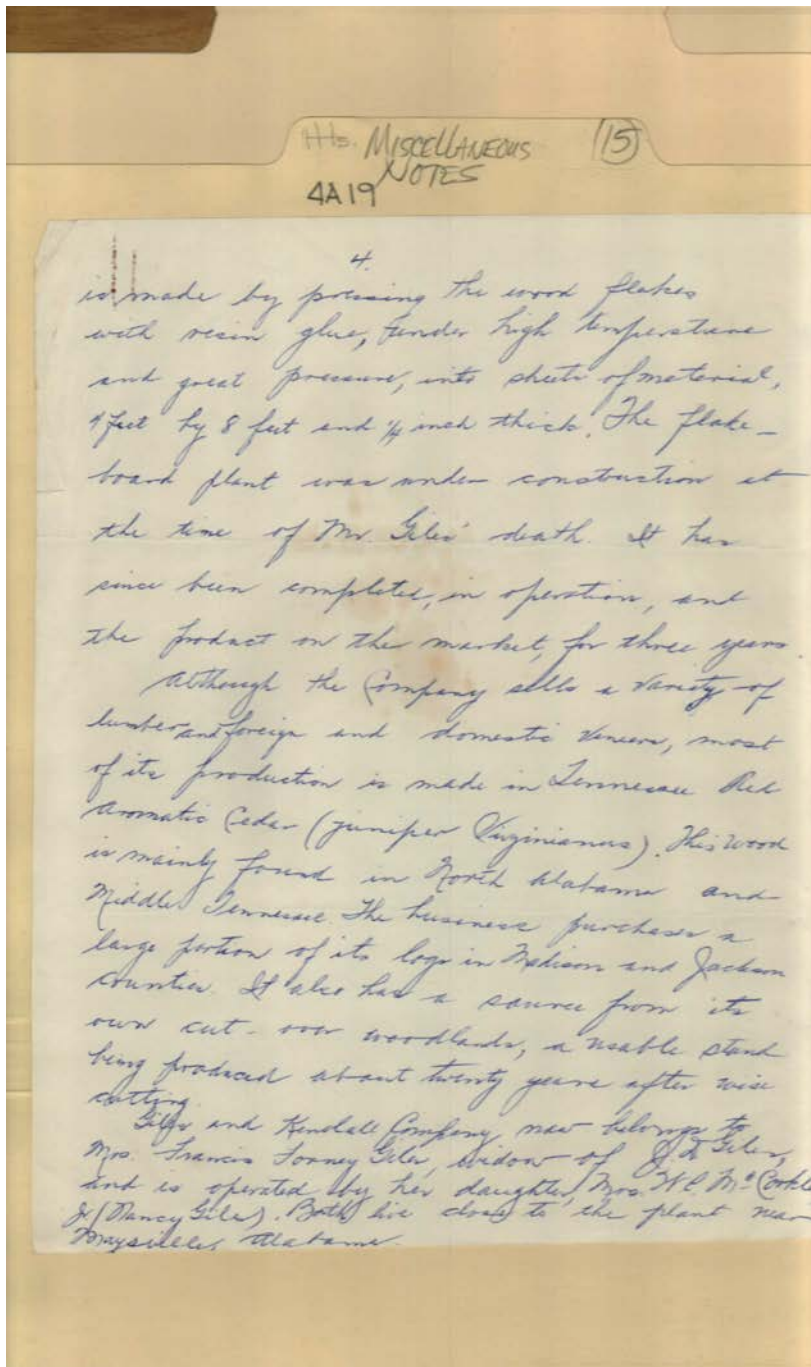 Hts. MISCELLANEOUS (15)
NOTES
4A19
4.
is made by pressing the wood flakes
with resin glue, under high temperature
and great pressure, into sheets of material,
4 feet by 8 feet and 1/4 inch thick. The flake-
board plant was under construction at
the time of Mr. Giles' death. It has
since been completed, in operation, and
the product on the market, for three years.
Although the Company sells a variety of
lumber and foreign and domestic veneers, most
of its production is made in Tennessee Red
Aromatic Cedar (juniper Virginianus). This wood
is mainly found in North Alabama and
Middle Tennessee. The business purchases a
large portion of its logs in Madison and Jackson
counties. It also has a source from its
own cut-over woodlands, a usable stand
being produced about twenty years after wise
cutting.
Giles and Kendall Company now belongs to
Mrs. Francis Forney Giles, widow of Giles,
and is operated by her daughter, Mrs. W C McCorkle
Jr (Nancy Giles). Both live close to the plant near
Maysville, Alabama.